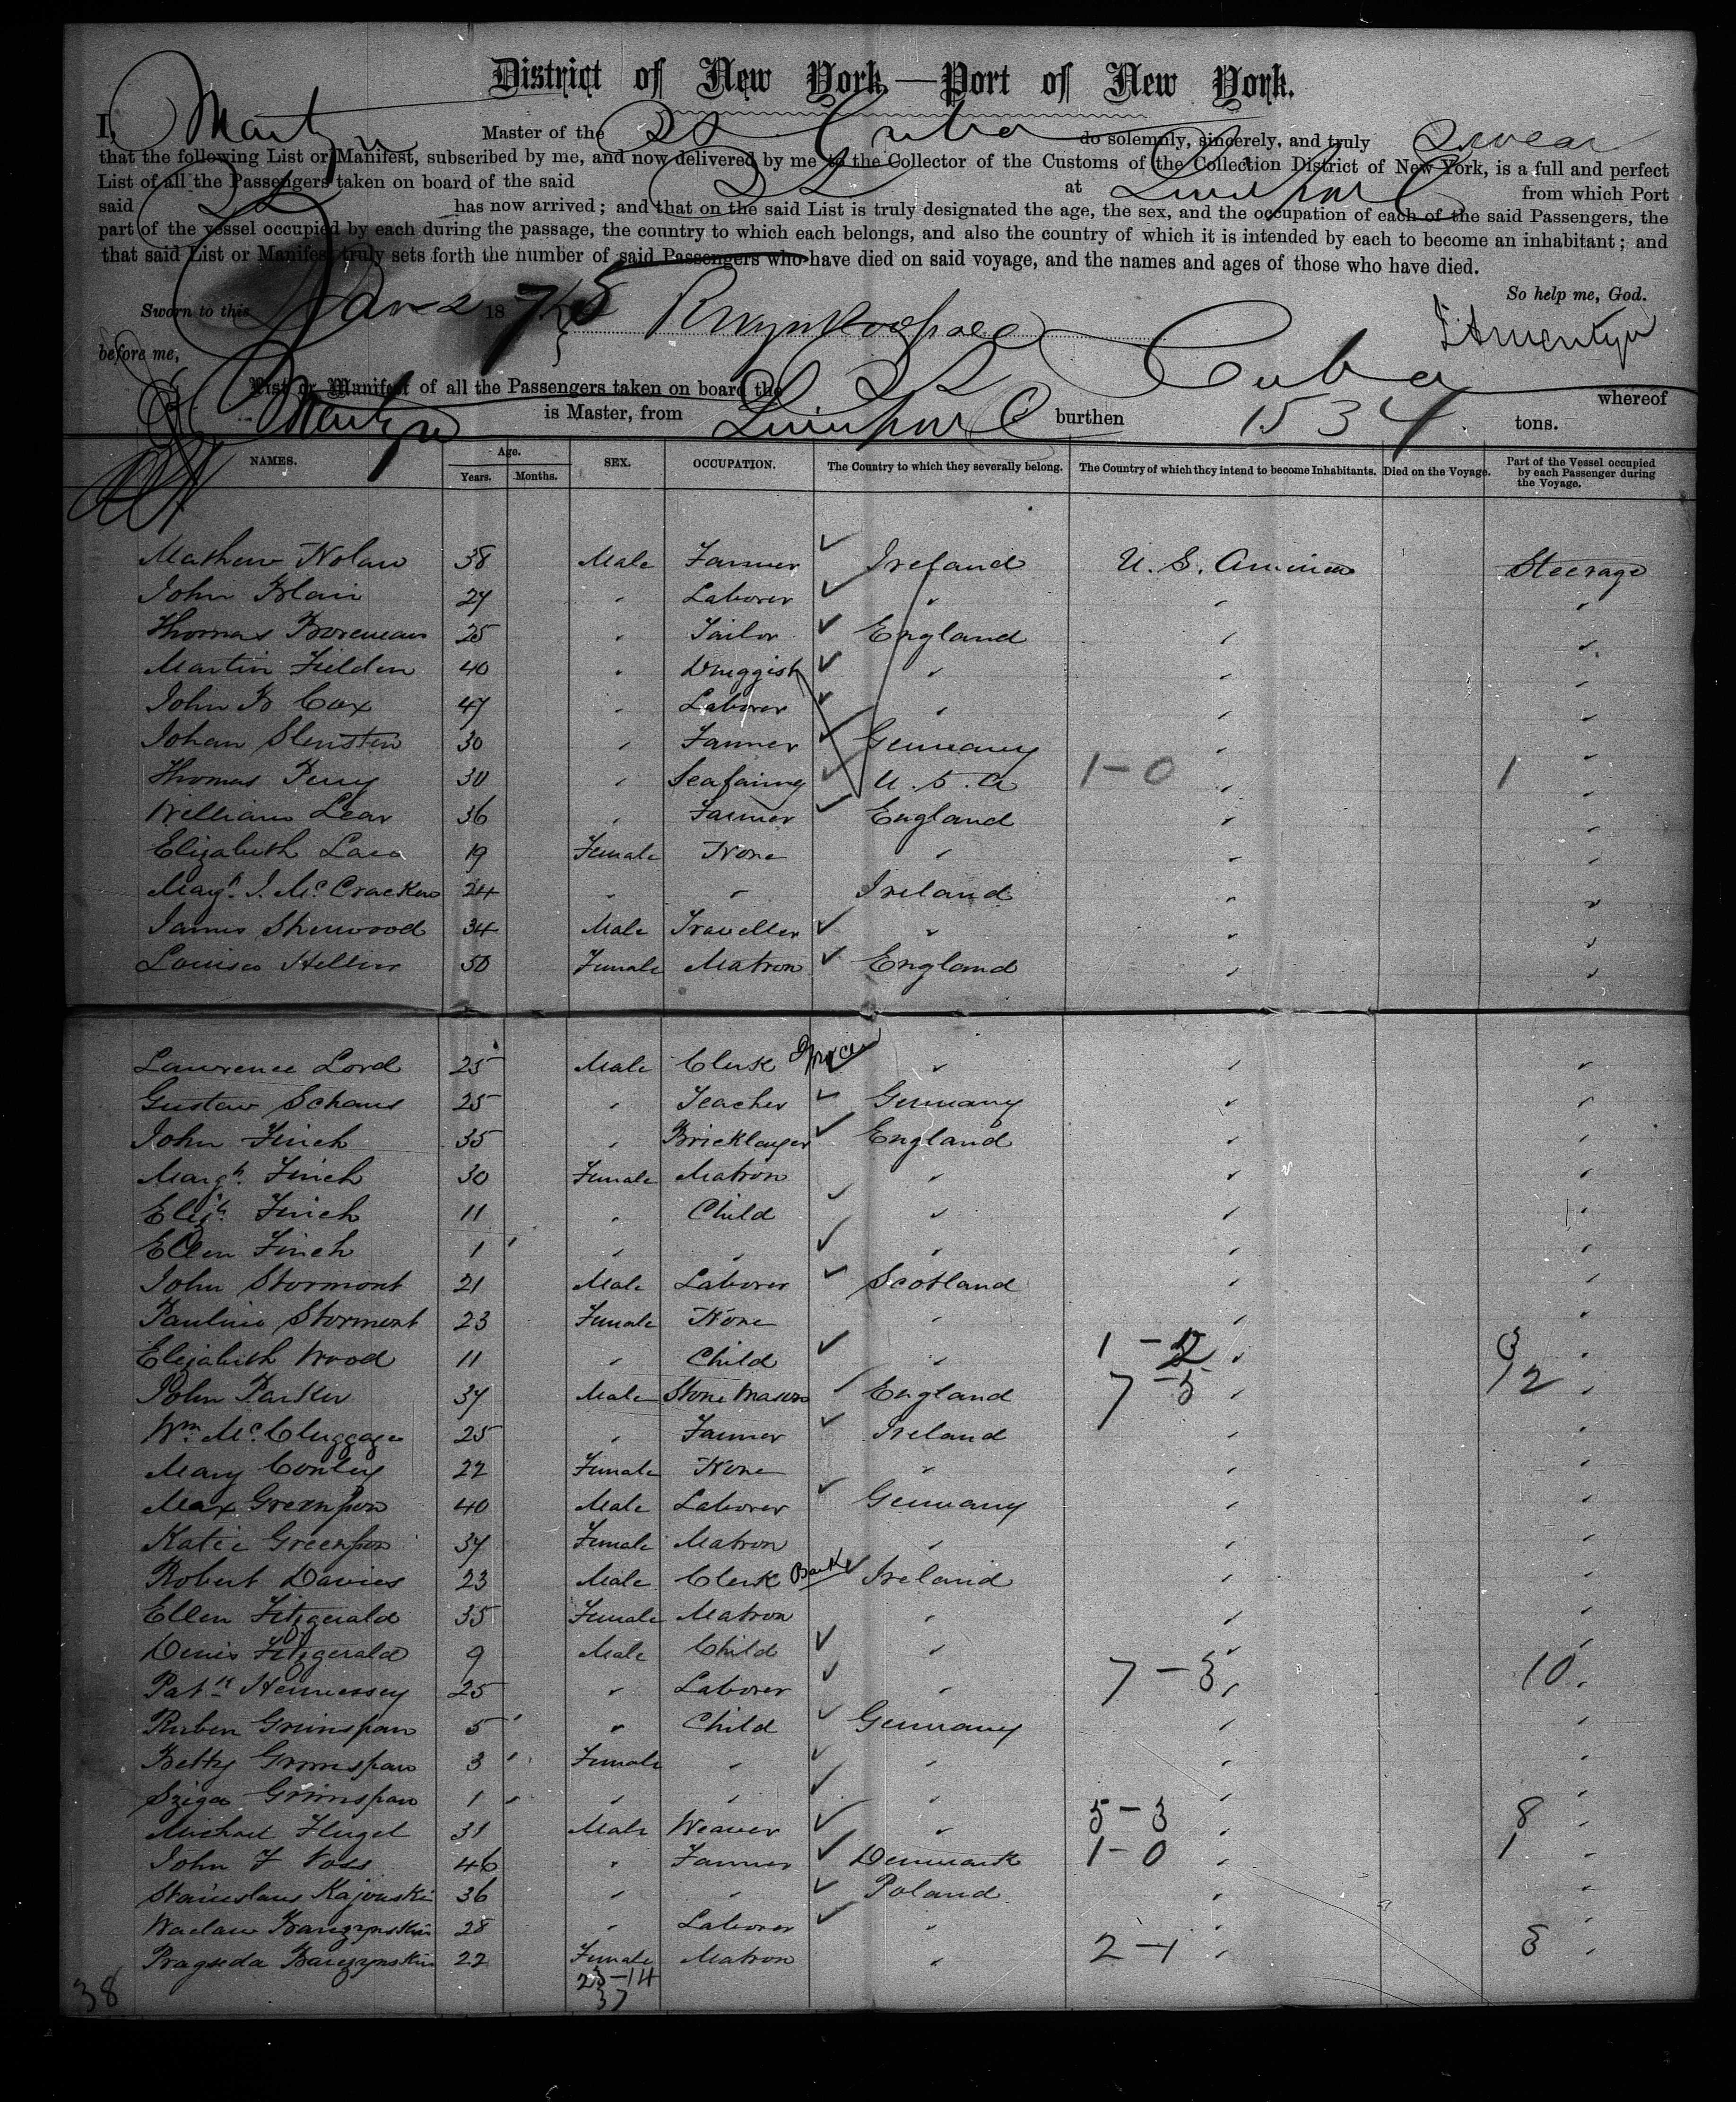 District of New York—Port of New York.
I, Martyn Master of the SS Cuba do solemnly, sincerely, and truly swear
that the following List or Manifest, subscribed by me, and now delivered by me to the Collector of the Customs of the Collection District of New York, is a full and perfect
List of all the Passengers taken on board of the said SS at Liverpool from which Port
said SS has now arrived; and that on the said List is truly designated the age, the sex, and the occupation of each of the said Passengers, the
part of the vessel occupied by each during the passage, the country to which each belongs, and also the country of which it is intended by each to become an inhabitant; and
that said List or Manifest truly sets forth the number of said Passengers who have died on said voyage, and the names and ages of those who have died.
So help me, God.
Sworn to this Jan 2 1875
before me,
List or Manifest of all the Passengers taken on board the SS Cuba whereof
Martyn is Master, from Liverpool burthen 1534 tons.
NAMES. Age. Years. Months. SEX. OCCUPATION. The Country to which they severally belong. The Country of which they intend to become Inhabitants. Died on the Voyage. Part of the Vessel occupied by each Passenger during the Voyage.
Mathew Nolan 38 Male Farmer Ireland U. S. America Steerage
John Blair 27 " Laborer " " "
Thomas Boreman 25 " Tailor England " "
Martin Fielden 40 " Druggist " " "
John B Cox 47 " Laborer " " "
Johan 30 " Farmer Germany " "
Thomas Perry 30 " Seafaring U.S.A 1-0 " 1 "
William Lear 36 " Farmer England " "
Elizabeth 19 Female None " " "
Margt. J. McCracken 24 " " Ireland " "
James Sherwood 34 Male Traveller " " "
Louisa Hellier 50 Female Matron England " "
Lawrence Lord 25 Male Clerk " " "
Gustav Schaus 25 " Teacher Germany " "
John Finch 35 " Bricklayer England " "
Margt. Finch 30 Female Matron " " "
Elizth. Finch 11 " Child " " "
Ellen Finch 1 " " " " "
John Stormont 21 Male Laborer Scotland " "
Pauline Stormont 23 Female None " " "
Elizabeth Wood 11 " Child " 1-2 " 3 "
John Parker 37 Male Stone Mason England 7-5 " 12 "
Wm. McCluggage 25 " Farmer Ireland " "
Mary Conley 22 Female None " " "
Max Greenspon 40 Male Laborer Germany " "
Katie Greenspon 37 Female Matron " " "
Robert Davies 23 Male Clerk Bank Ireland " "
Ellen Fitzgerald 35 Female Matron " " "
Denis Fitzgerald 9 Male Child " " "
Patk Hennessey 25 " Laborer " 7-3 " 10 "
Ruben Grinspan 5 " Child Germany " "
Betty Grinspan 3 Female " " " "
Sziga Grinspan 1 " " " " "
Michael Flugel 31 Male Weaver " 5-3 " 8 "
John F Voss 46 " Farmer Denmark 1-0 " 1 "
Stanislaus Kajouski 36 " " Poland " "
Waclaw Barczynskin 28 " Laborer " " "
Prageda Barczynskin 22 Female Matron " 2-1 " 3 "
23-14
37
38